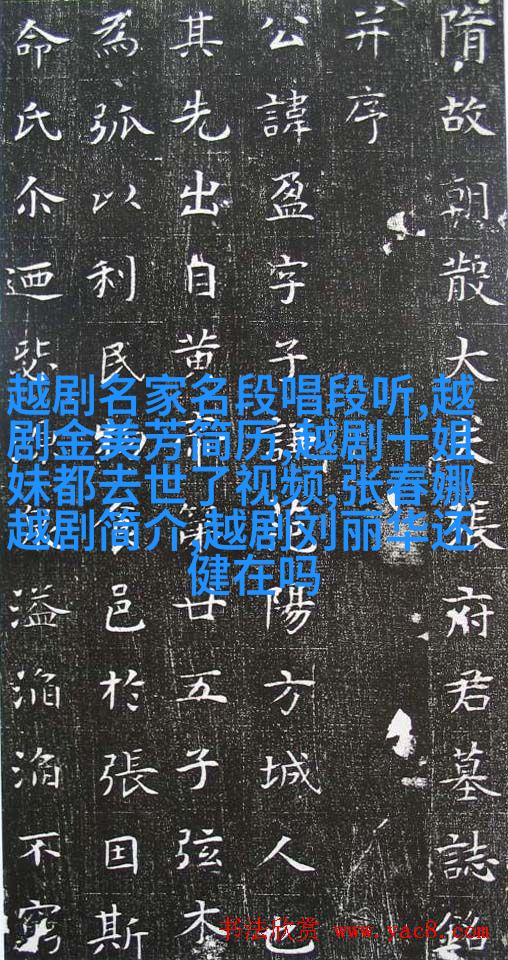 隋故朝散大夫張府君墓誌銘
并序
公諱盈字子謙范陽方城人也
其先出自黄帝第廿五子弦木
為弧以利民食邑於張因斯
命氏尒迺溢滔滔不窮
越剧名家名段唱段听,越
剧金美芳简历,越剧十姐
妹都去世了视频,张春娜
越剧简介,越剧刘丽华还
健在吗
书法欣赏 www.yac8.com